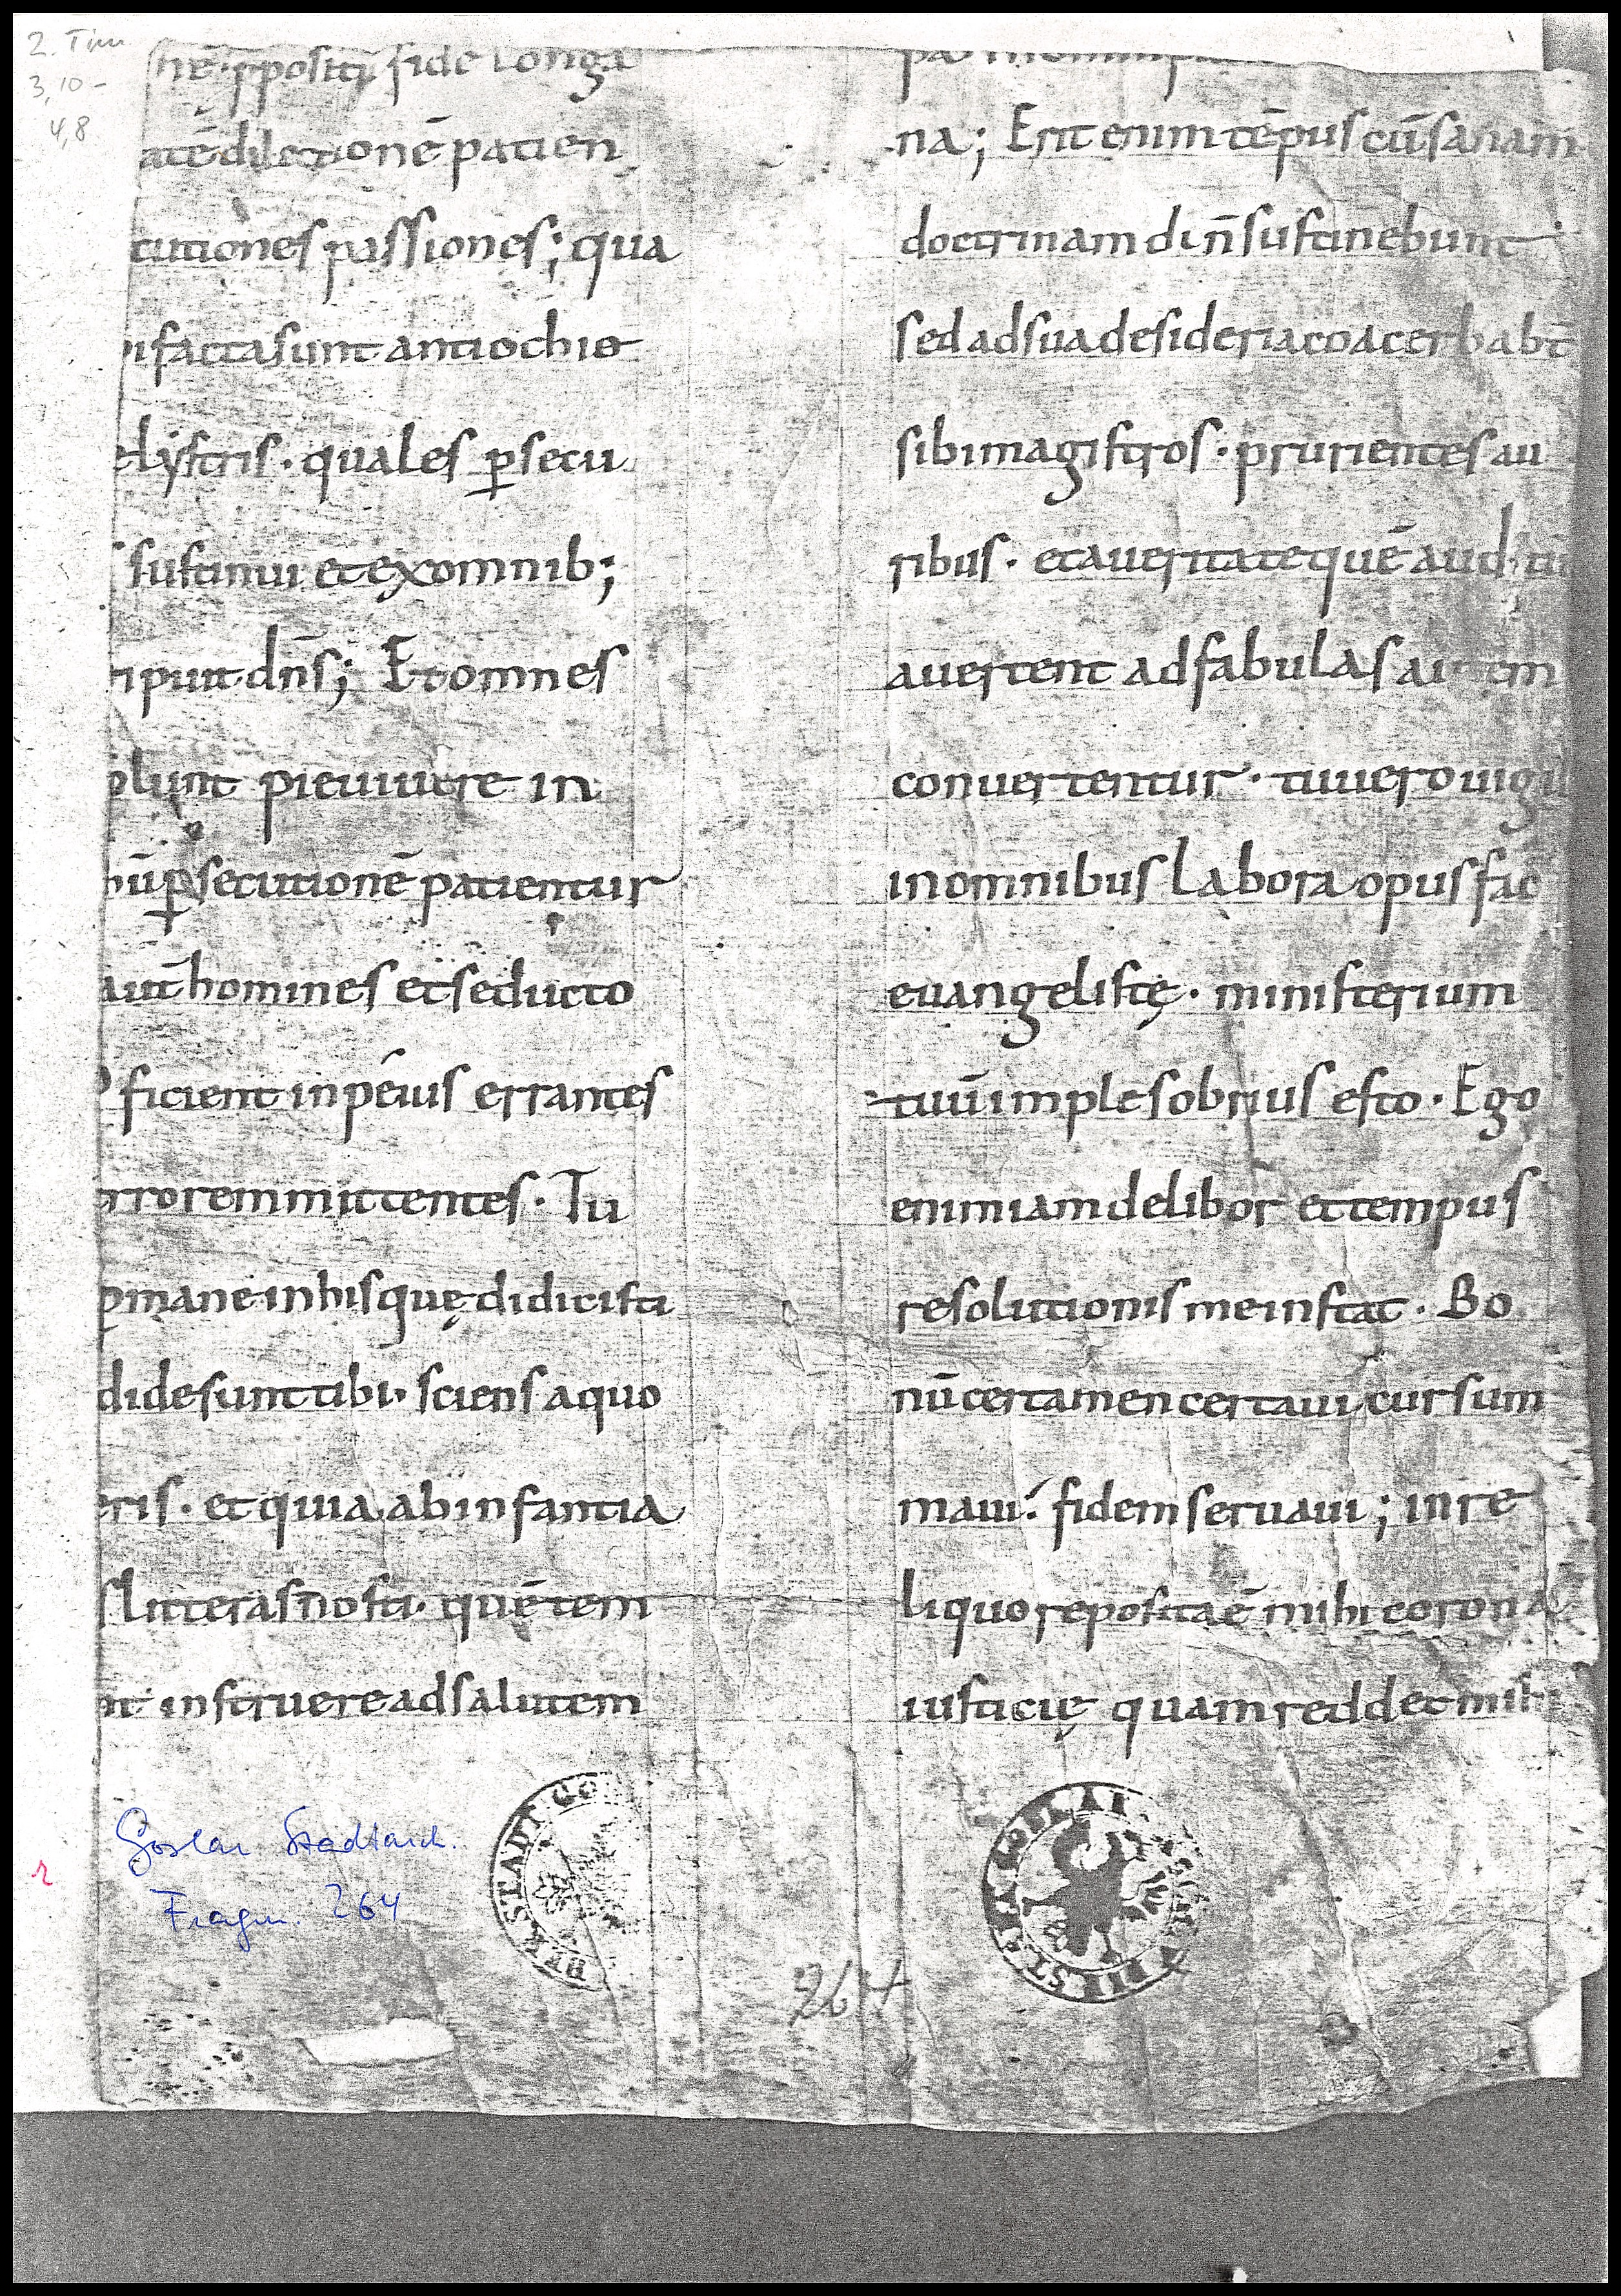 2. Tim
3,10-
4,8
nē· ꝓpositū fide longa
atē dilectionē patien
cutiones passiones; qua
i facta sunt antiochię
elystris · quales ꝑsecu
sustinui et ex omnib;
ripuit dn̄s; Et omnes
olunt pie uiuere in
hū ꝑsecutionē patientur
aut̄ homines et seducto
ficient in peius errantes
rrorem mittentes · Tu
ꝑmane in his quę didicisti
dide sunt tibi· sciens a quo
eris · et quia ab infantia
s litteras nosti· quę te m
nt instruere ad salutem
na; Erit enim tēpus cū sanam
doctrinam di n̄ sustinebunt
sed ad sua desideria coacerbabt̄
sibi magistros · prurientes au
ribus · et a ueritate quē aud tū
auertent ad fabulas autem
conuertentur · tu uero uigil
in omnibus labora opus fac
euangelistę · ministerium
tuū imple sobrius esto · Ego
enim iam delibor et tempus
resolutionis me instat · Bo
nū certamen certaui cursum
maui· fidem seruaui ; in re
liquo reposita ē mihi corona
iusticię quam reddet mihi
Goslar Stadtarch.
Fragm. 264
264